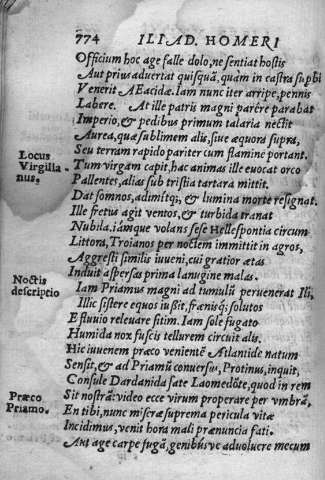 774 ILIAD. HOMERI
Officium hoc age falle dolo, ne sentiat hostis
Aut prius advertat quisquã, quàm in castra supbi
Venerit AEacidæ. Iam nunc iter arripe, pennis
Labere. At ille patris magni parêre parabat
Imperio, & pedibus primum talaria nectit
Aurea, quæ sublimem alis, siue æquora supra,
Seu terram rapido pariter cum flamine portant.
Locus Virgilianus.
Tum virgam capit, hac animas ille euocat orco
Pallentes, alias sub tristia tartara mittit.
Dat somnos, adimitq;, & lumina morte resignat.
Ille fretus agit ventos, & turbida tranat
Nubila. iámque volans sese Hellespontia circum
Littora, Troianos per noctem immittit in agros,
Aggresti similis iuueni, cui gratior ætas
Induit aspersas prima lanugine malas.
Noctis descriptio
Iam Priamus magni ad tumuli peruenerat Ili,
Illic sistere equos iußit, frænisq; solutos
E fluuio releuare sitim. Iam sole fugato
Humida nox fuscis tellurem circuit alis.
Hic iuuenem præco venientẽ Atlantide natum
Sensit, & ad Priamũ conuersus, Protinus, inquit,
Consule Dardanida sate Laomedõte, quod in rem
Præco Priamo.
Sit nostrã: video ecce virum properare per vmbrã,
En tibi, nunc miseræ suprema pericula vitæ
Incidimus, venit hora mali prænuncia fati.
Aut age carpe fugã, genibúsve aduoluere mecum